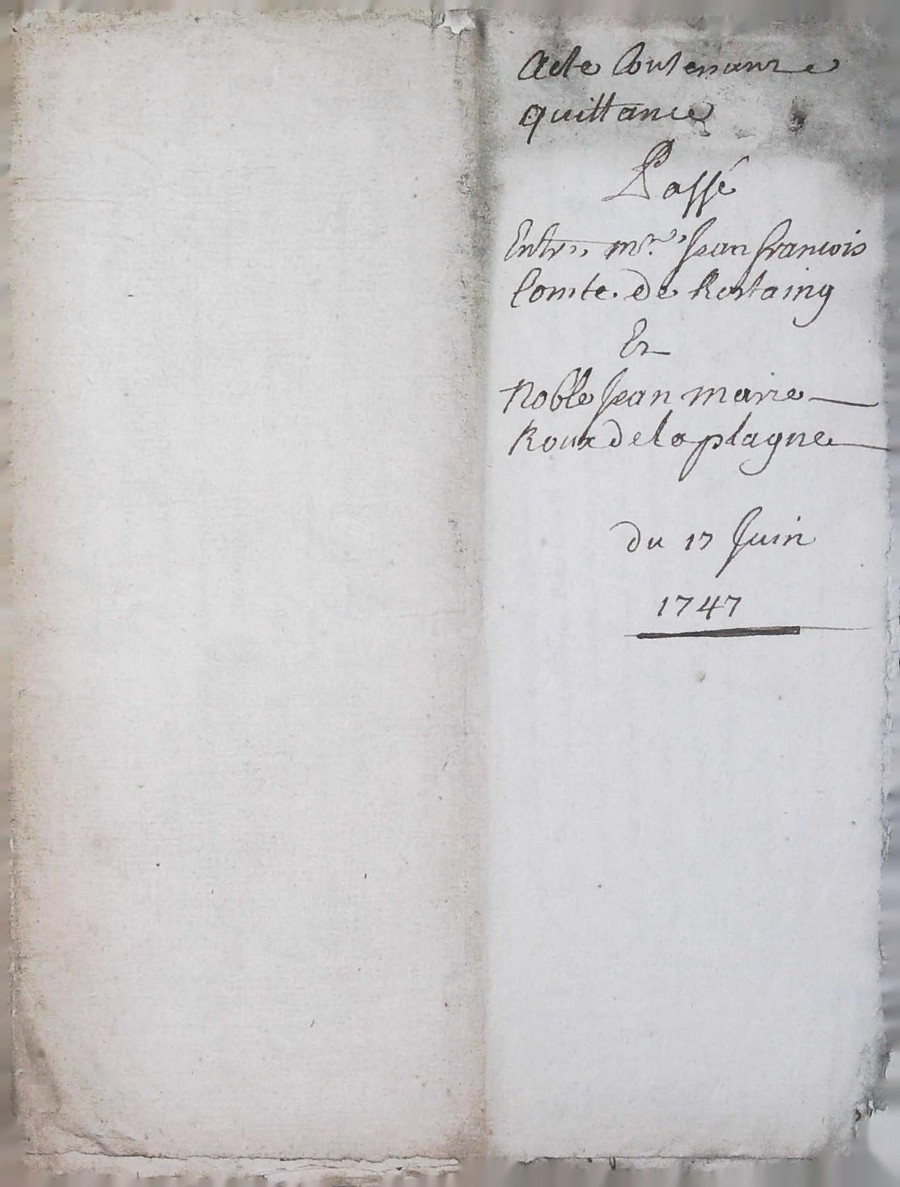 Acte Contenant
quittance
Passé
Entre mr. Jean francois
Comte de Rostaing
Et
Noble Jean marie
Roux de la plagne
du 17 Juin
1747